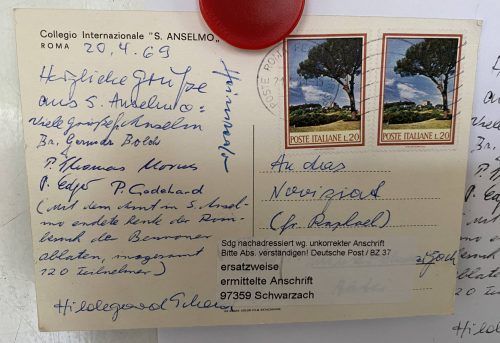 Collegio Internazionale "S. ANSELMO"
ROMA
20.4.69
Herzliche Grüße
aus S. Anselmo:
Viele Grüße fr. Anselm
P. Thomas Morus
P. Godehard
(Mit dem Amt in S. Ansel-
mo endete heute der Rom-
besuch der Beuroner
oblaten, insgesamt
120 Teilnehmer)
Hildegard
POSTE ITALIANE L.20
POSTE ITALIANE L.20
An das
Noviziat
(fr. Raphael)
Sdg nachadressiert wg. unkorrekter Anschrift
Bitte Abs. verständigen! Deutsche Post / BZ 37
ersatzweise
ermittelte Anschrift
97359 Schwarzach